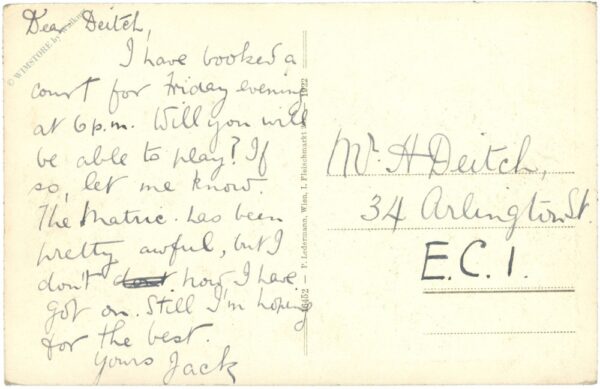 Dear Deitch,
I have booked a
court for Friday evening
at 6 p.m. Will you will
be able to play? If
so, let me know.
The Matric. has been
pretty awful, but I
don't dont how I have
got on. Still I'm hoping
for the best.
Yours Jack
© WIMSTORE by
16452 – P. Ledermann, Wien, I. Fleischmarkt 1922
Mr. H Deitch,
34 Arlington St.
E.C.1.